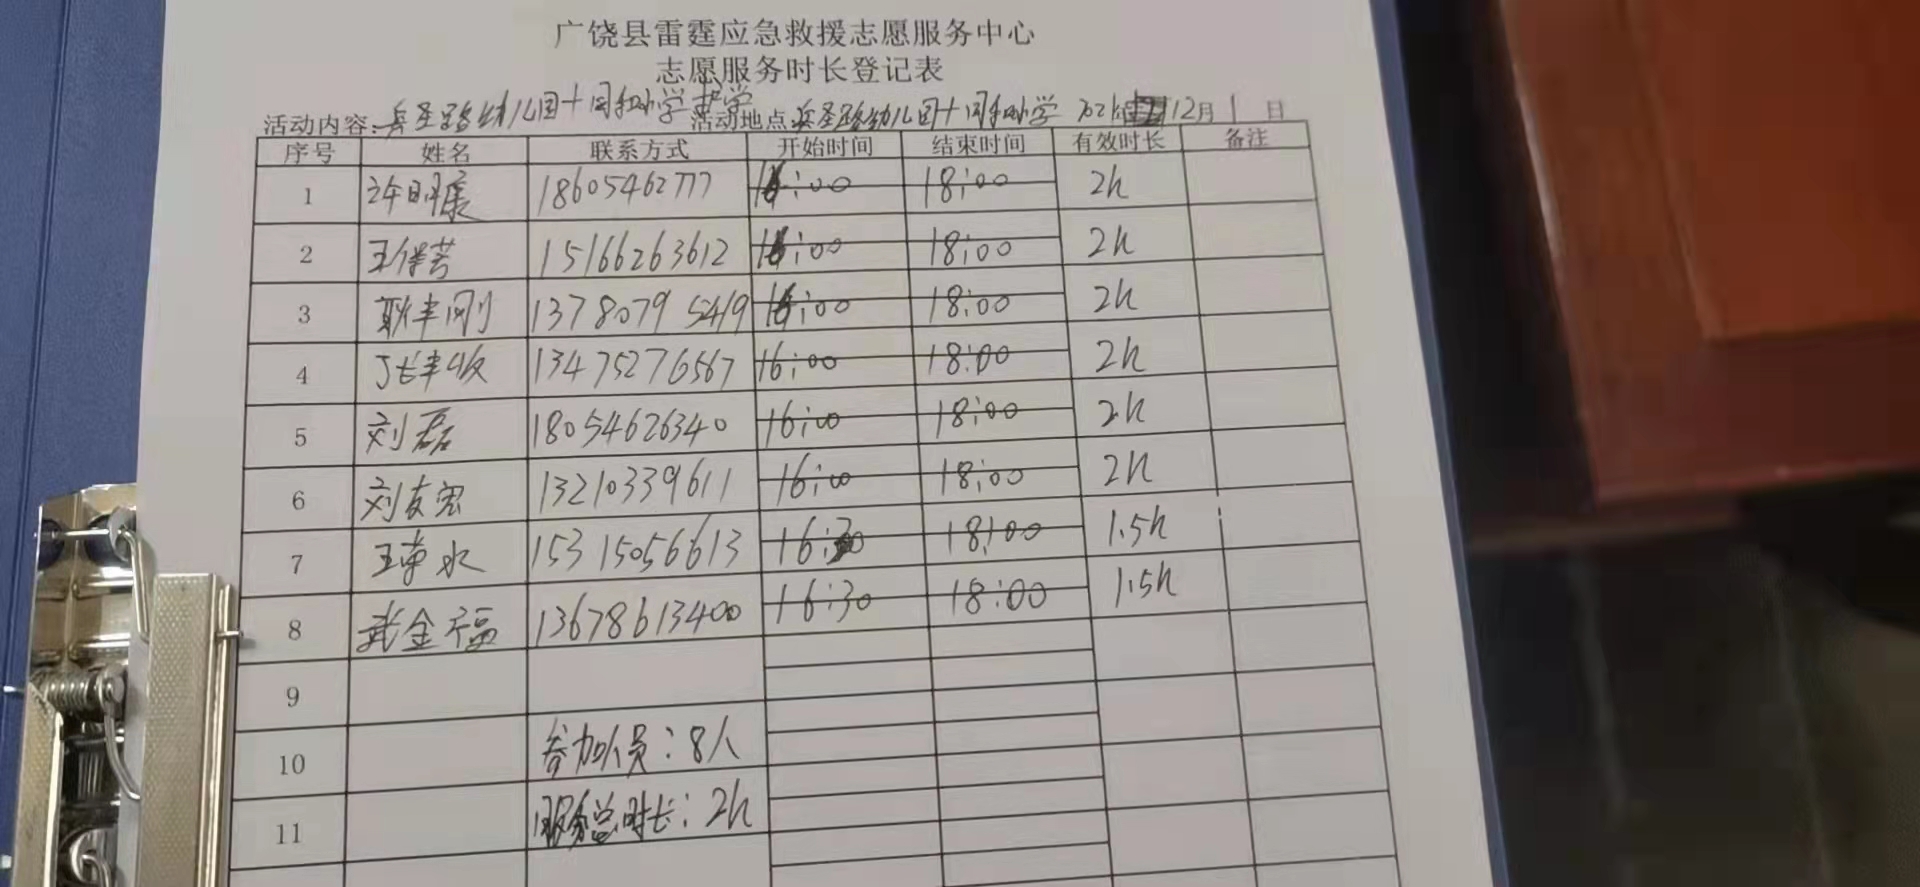 广饶县雷霆应急救援志愿服务中心
志愿服务时长登记表
活动内容:兵圣路幼儿园十同和小学护学 活动地点:兵圣路幼儿园十同和小学 12月1日
序号 姓名 联系方式 开始时间 结束时间 有效时长 备注
1 许明康 18605462777 16:00 18:00 2h
2 王传芳 15166263612 16:00 18:00 2h
3 耿丰刚 13780795419 16:00 18:00 2h
4 丰收 13475276567 16:00 18:00 2h
5 刘磊 18054626340 16:00 18:00 2h
6 刘友宏 13210339611 16:00 18:00 2h
7 王荣水 15315056613 16:30 18:00 1.5h
8 武金福 13678613400 16:30 18:00 1.5h
9
10 参加人员:8人
11 服务总时长:2h